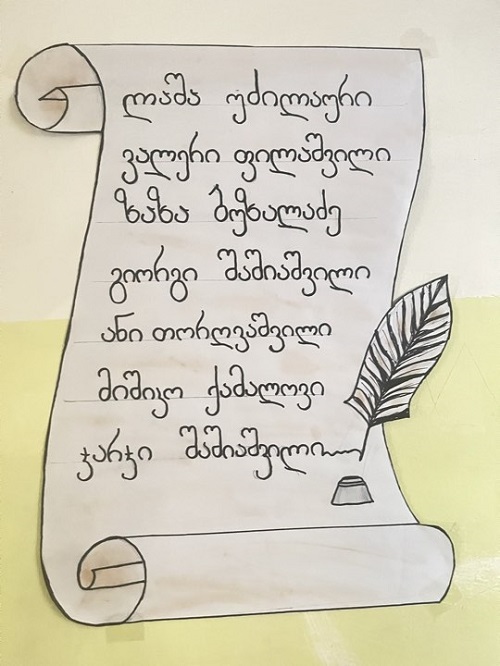 ლაშა უძილაური
ვალერი ფილაშვილი
ზაზა ბუზალაძე
გიორგი შაშიაშვილი
ანი თორღვაშვილი
მიშიკო ქამალოვი
ჯარჯი შაშიაშვილი